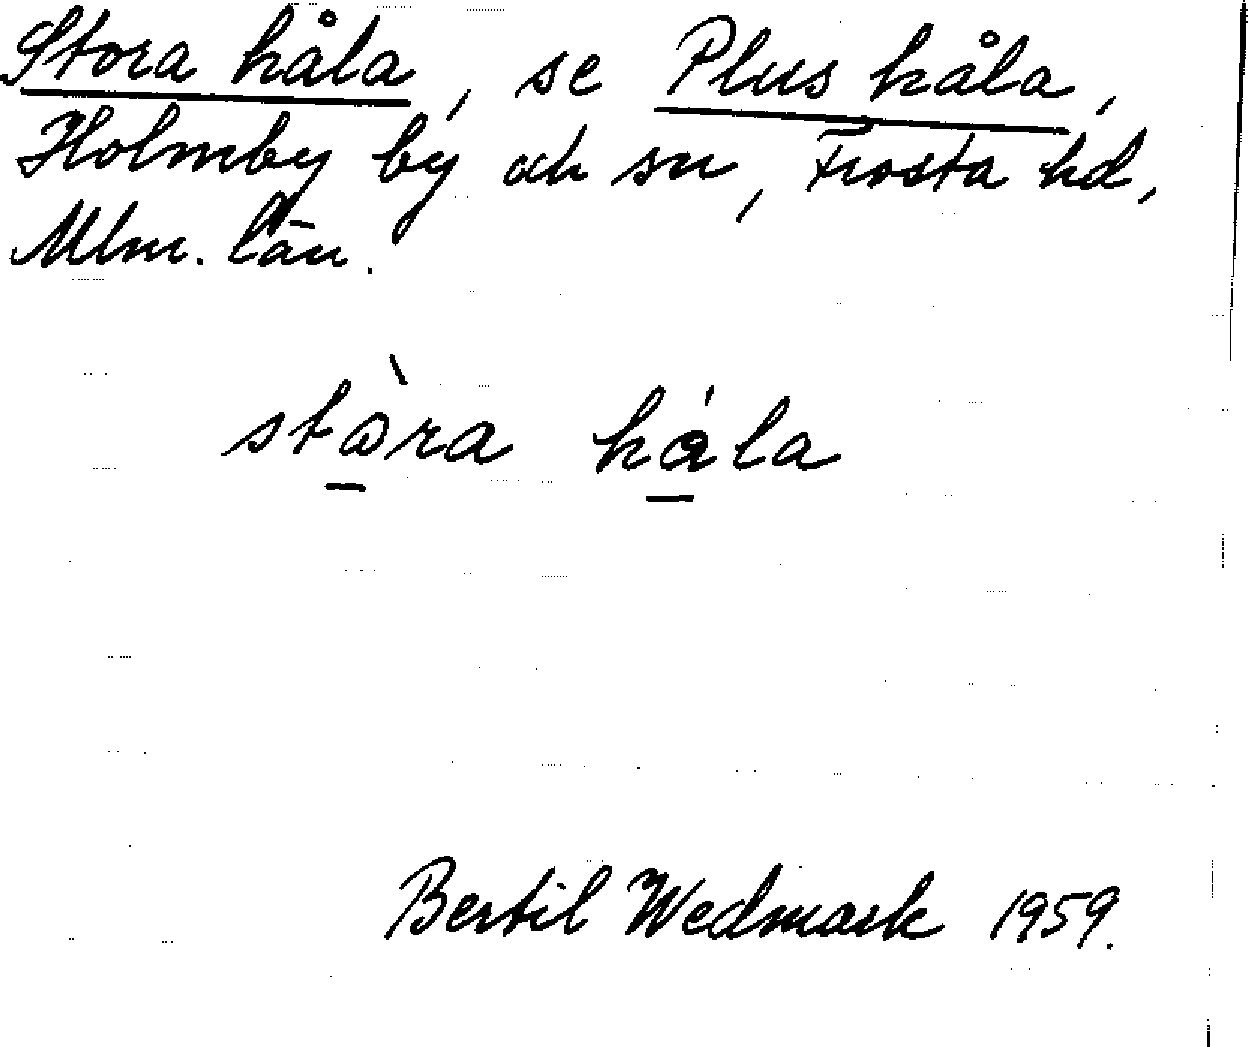 Stora håla, se Plus håla,
Holmby by och sn, Frosta hd,
Mlm. län.
stòra håla
Bertil Wedmark 1959.